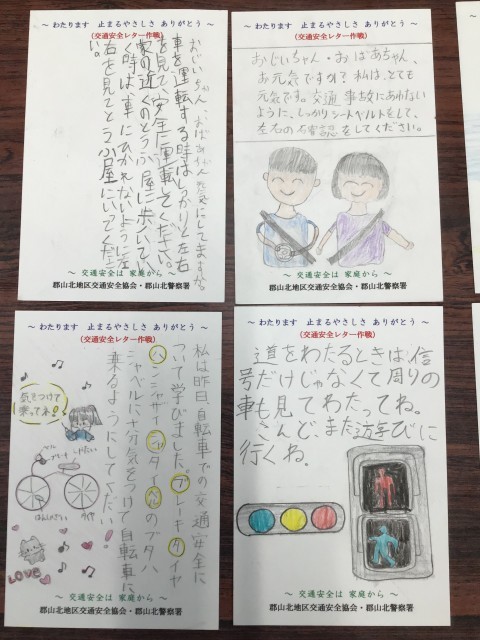 ～ わたります 止まるやさしさ ありがとう ～
(交通安全レター作戦)
おじいちゃん、おばあちゃん元気にしてますか。
車を運転する時はしっかりと左右
を見て、安全に運転してください。
家の近くのとうふ屋に歩いてい
く時は、車にひかれないように左
右を見てとうふ屋にいってくださ
い。
～ 交通安全は 家庭から ～
郡山北地区交通安全協会・郡山北警察署
～ わたります 止まるやさしさ ありがとう ～
(交通安全レター作戦)
おじいちゃん・おばあちゃん、
お元気ですか？私は、とても
元気です。交通事故にあわない
ように、しっかりシートベルトをして、
左右の確認をしてください。
～ 交通安全は 家庭から ～
郡山北地区交通安全協会・郡山北警察署
～ わたります 止まるやさしさ ありがとう ～
(交通安全レター作戦)
私は昨日、自転車での交通安全に
ついて学びました。ブレーキ、タイヤ
ハンシャザイ、シャタイ、ベルのブタハ
シャベルに十分気をつけて自転車に
乗るようにしてください!
気をつけて
乗ってね!
ブレーキ
しゃたい
はんしゃざい
タイヤ
LOVE
～ 交通安全は 家庭から ～
郡山北地区交通安全協会・郡山北警察署
～ わたります 止まるやさしさ ありがとう ～
(交通安全レター作戦)
道をわたるときは、信
号だけじゃなくて周りの
車も見てわたってね。
こんど、また遊びに
行くね。
～ 交通安全は 家庭から ～
郡山北地区交通安全協会・郡山北警察署